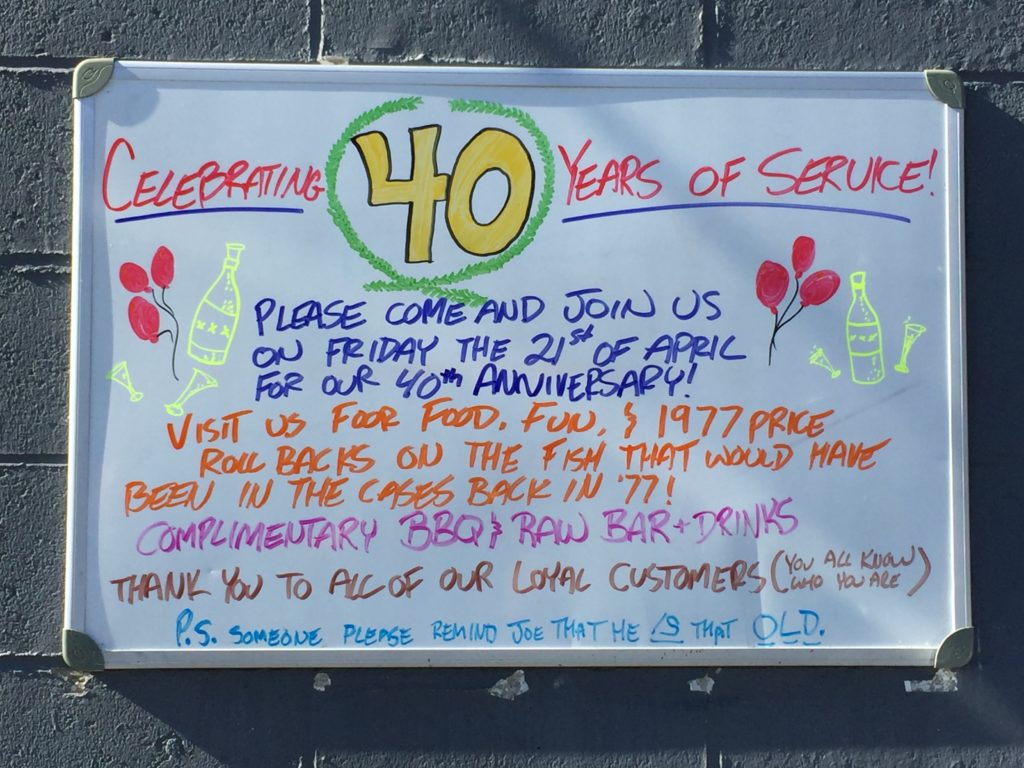 CELEBRATING 40 YEARS OF SERVICE!
PLEASE COME AND JOIN US
ON FRIDAY THE 21st OF APRIL
FOR OUR 40th ANNIVERSARY!
VISIT US FOOR FOOD, FUN, & 1977 PRICE
ROLL BACKS ON THE FISH THAT WOULD HAVE
BEEN IN THE CASES BACK IN '77!
COMPLIMENTARY BBQ & RAW BAR + DRINKS
THANK YOU TO ALL OF OUR LOYAL CUSTOMERS (YOU ALL KNOW
WHO YOU ARE)
P.S. SOMEONE PLEASE REMIND JOE THAT HE IS THAT OLD.
XXX